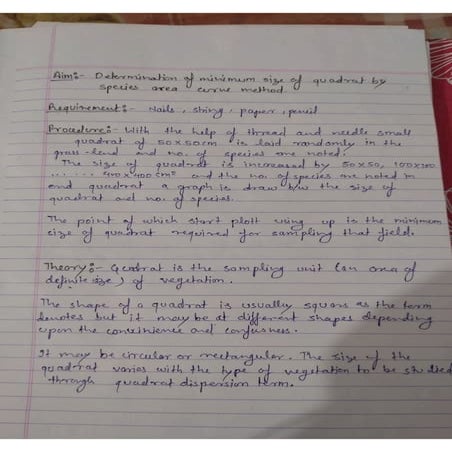 Aim:- Determination of minimum size of quadrat by
species area curve method.
Requirement:- Nails, string, paper, pencil
Procedure:- With the help of thread and needle small
quadrat of 50x50cm is laid randomly in the
grass-land and no. of species are noted.
The size of quadrat is increased by 50x50, 100x100
...... 400x400 cm² and the no. of species are noted in
end quadrat a graph is draw b/w the size of
quadrat and no. of species.
The point of which start plott using up is the minimum
size of quadrat required for sampling that field.
Theory:- Quadrat is the sampling unit (an area of
definite size) of vegetation.
The shape of a quadrat is usually square as the term
denotes but it may be at different shapes depending
upon the convinience and
It may be circular or rectangular. The size of the
quadrat varies with the type of vegetation to be studied
through quadrat dispersion term.